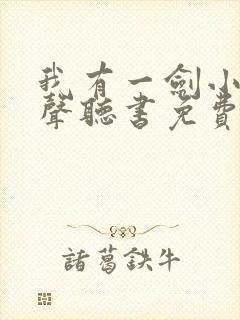 我有一劍小
聲聽書免費
諸葛鉄牛